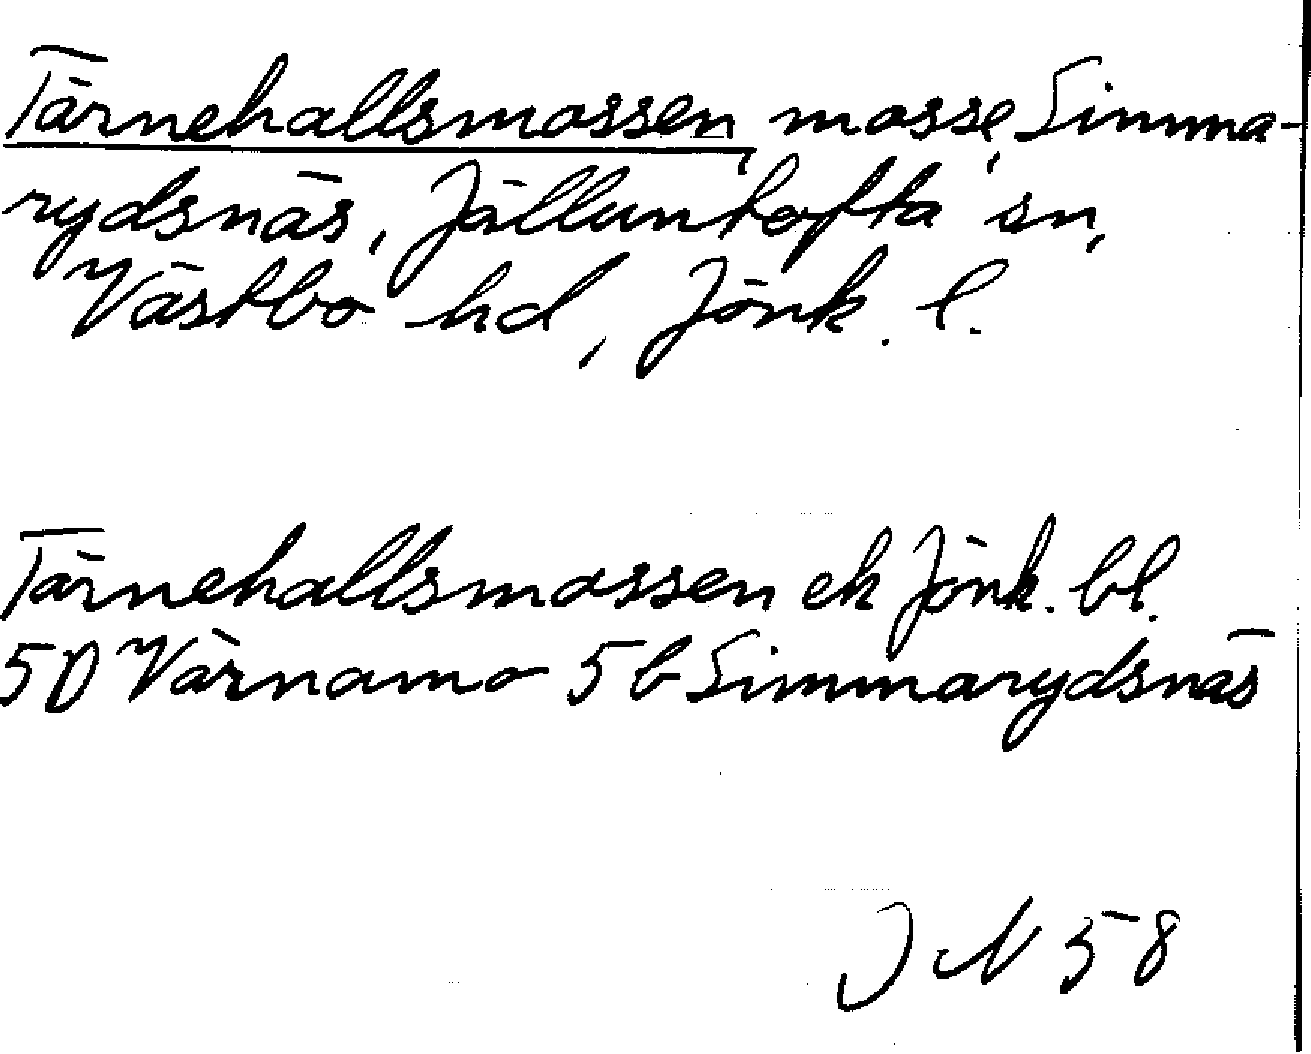 Tärnehallsmossen, mosse, Simma-
rydsnäs, Jälluntofta sn,
Västbo hd, Jönk. l.
Tärnehallsmossen ek Jönk. bl.
5D Värnamo 5b Simmarydsnäs
JN 58